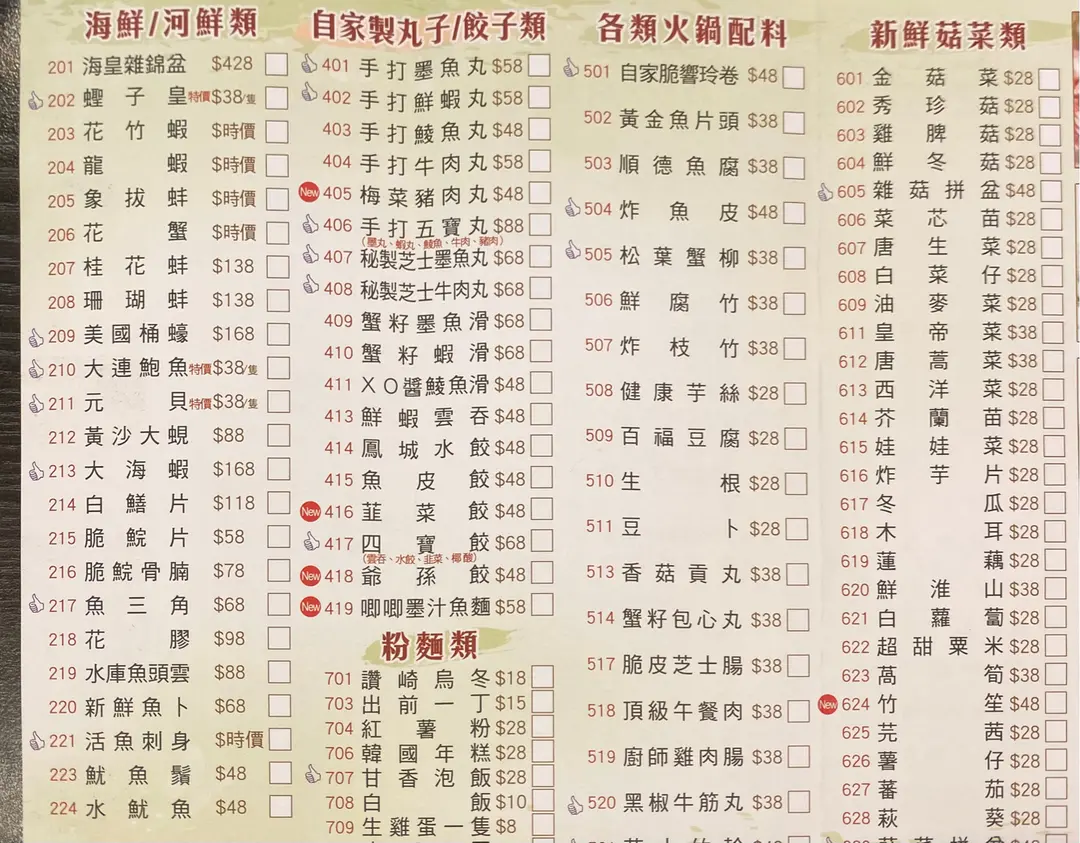 海鮮/河鮮類
201 海皇雜錦盆 $428
202 蟶子皇 特價$38/隻
203 花竹蝦 $時價
204 龍蝦 $時價
205 象拔蚌 $時價
206 花蟹 $時價
207 桂花蚌 $138
208 珊瑚蚌 $138
209 美國桶蠔 $168
210 大連鮑魚 特價$38/隻
211 元貝 特價$38/隻
212 黃沙大蜆 $88
213 大海蝦 $168
214 白鱔片 $118
215 脆鯇片 $58
216 脆鯇骨腩 $78
217 魚三角 $68
218 花膠 $98
219 水庫魚頭雲 $88
220 新鮮魚卜 $68
221 活魚刺身 $時價
223 魷魚鬚 $48
224 水魷魚 $48
自家製丸子/餃子類
401 手打墨魚丸 $58
402 手打鮮蝦丸 $58
403 手打鯪魚丸 $48
404 手打牛肉丸 $58
New 405 梅菜豬肉丸 $48
406 手打五寶丸 $88
(墨丸、蝦丸、鯪魚、牛肉、豬肉)
407 秘製芝士墨魚丸 $68
408 秘製芝士牛肉丸 $68
409 蟹籽墨魚滑 $68
410 蟹籽蝦滑 $68
411 XO醬鯪魚滑 $48
413 鮮蝦雲吞 $48
414 鳳城水餃 $48
415 魚皮餃 $48
New 416 韮菜餃 $48
417 四寶餃 $68
(雲吞、水餃、韭菜、椰酸)
New 418 爺孫餃 $48
New 419 唧唧墨汁魚麵 $58
粉麵類
701 讚崎烏冬 $18
703 出前一丁 $15
704 紅薯粉 $28
706 韓國年糕 $28
707 甘香泡飯 $28
708 白飯 $10
709 生雞蛋一隻 $8
各類火鍋配料
501 自家脆響玲卷 $48
502 黃金魚片頭 $38
503 順德魚腐 $38
504 炸魚皮 $48
505 松葉蟹柳 $38
506 鮮腐竹 $38
507 炸枝竹 $38
508 健康芋絲 $28
509 百福豆腐 $28
510 生根 $28
511 豆卜 $28
513 香菇貢丸 $38
514 蟹籽包心丸 $38
517 脆皮芝士腸 $38
518 頂級午餐肉 $38
519 廚師雞肉腸 $38
520 黑椒牛筋丸 $38
新鮮菇菜類
601 金菇菜 $28
602 秀珍菇 $28
603 雞脾菇 $28
604 鮮冬菇 $28
605 雜菇拼盆 $48
606 菜芯苗 $28
607 唐生菜 $28
608 白菜仔 $28
609 油麥菜 $28
611 皇帝菜 $38
612 唐蒿菜 $38
613 西洋菜 $28
614 芥蘭苗 $28
615 娃娃菜 $28
616 炸芋片 $28
617 冬瓜 $28
618 木耳 $28
619 蓮藕 $28
620 鮮淮山 $38
621 白蘿蔔 $28
622 超甜粟米 $28
623 萵筍 $38
New 624 竹笙 $48
625 芫茜 $28
626 薯仔 $28
627 蕃茄 $28
628 萩葵 $28